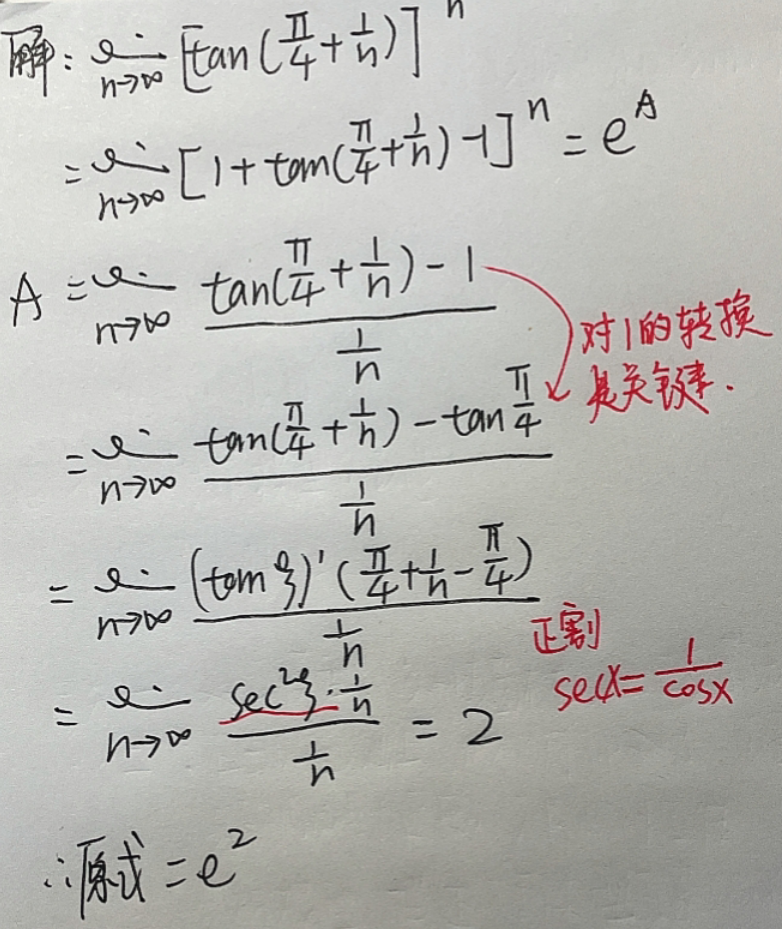 解: lim n→∞ [tan(π/4+1/n)]^n
= lim n→∞ [1+tan(π/4+1/n)-1]^n = e^A
A = lim n→∞ (tan(π/4+1/n)-1)/(1/n)
对1的转换
是关键.
= lim n→∞ (tan(π/4+1/n)-tanπ/4)/(1/n)
= lim n→∞ (tanξ)'(π/4+1/n-π/4)/(1/n)
正割
secx=1/cosx
= lim n→∞ (sec²ξ·1/n)/(1/n) = 2
∴原式=e²